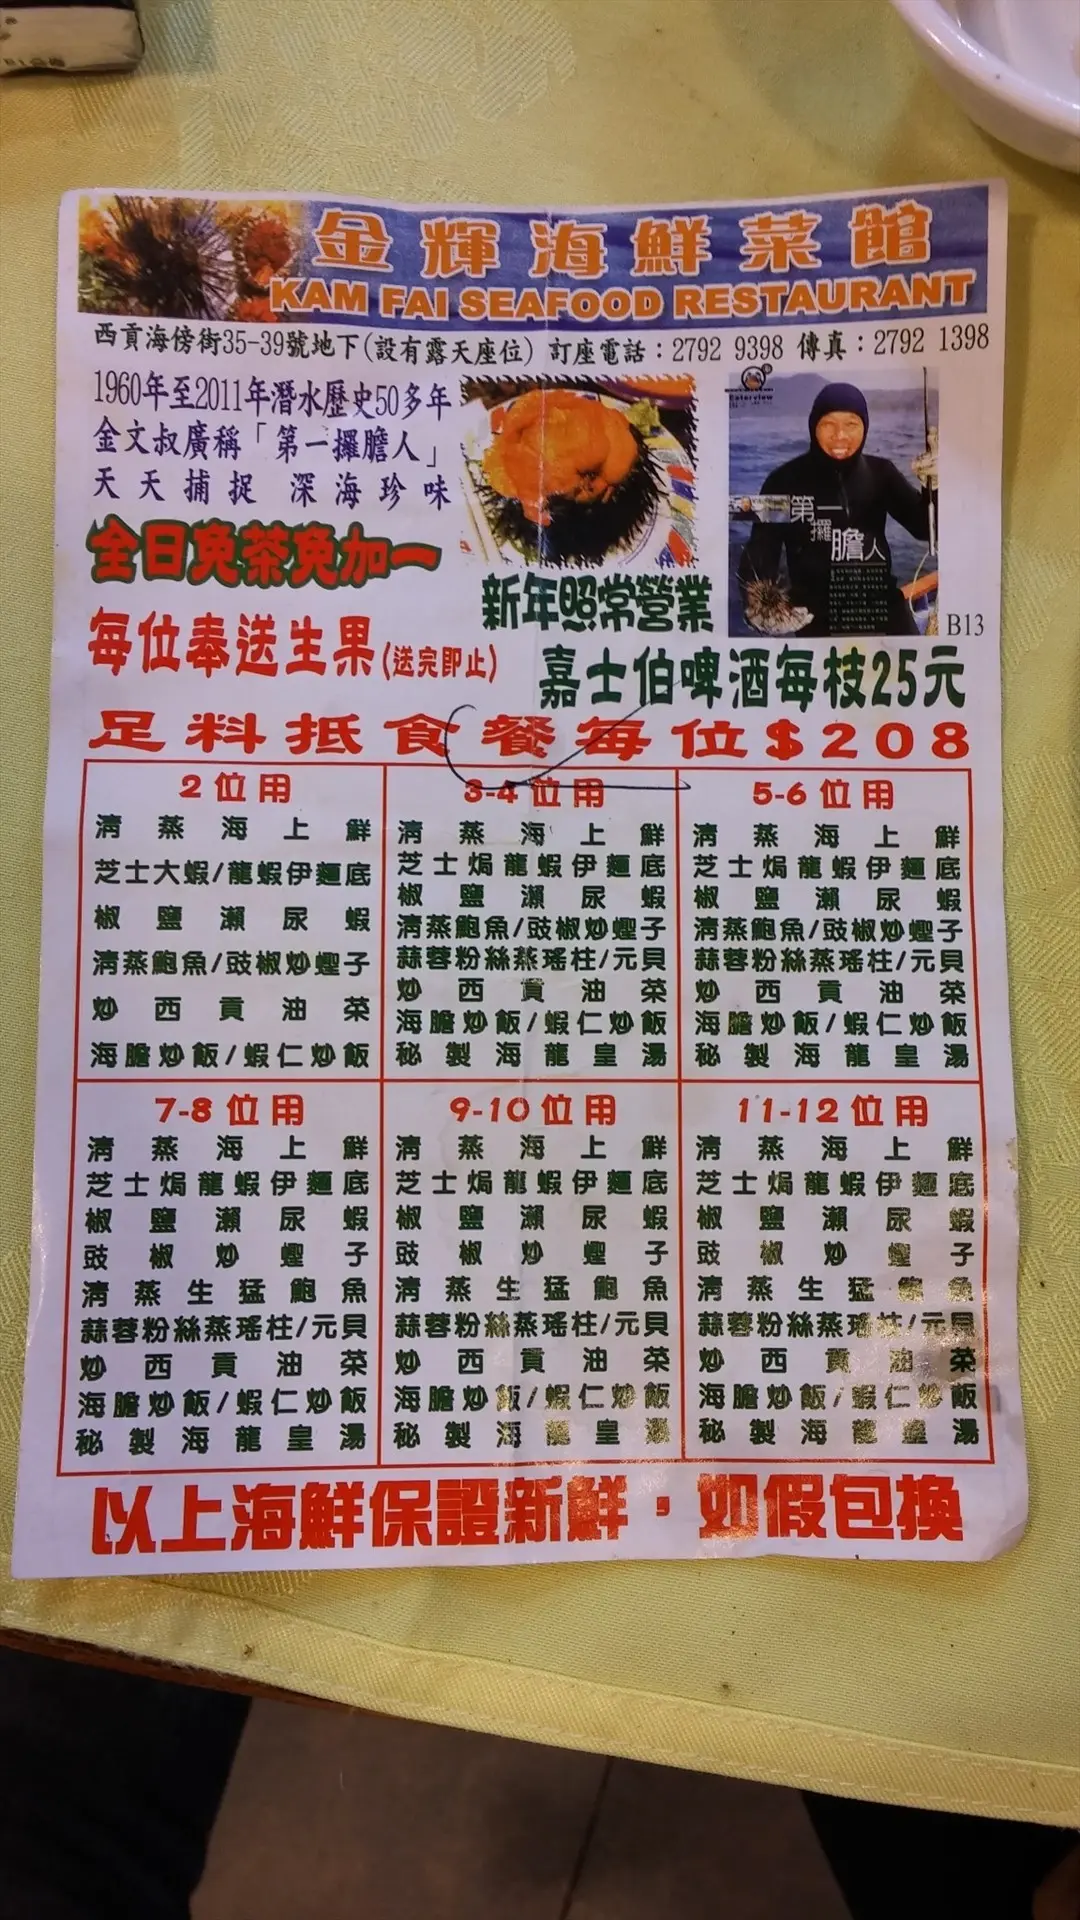 金輝海鮮菜館
KAM FAI SEAFOOD RESTAURANT
西貢海傍街35-39號地下(設有露天座位) 訂座電話：2792 9398 傳真：2792 1398
1960年至2011年潛水歷史50多年
金文叔廣稱「第一攞膽人」
天天捕捉 深海珍味
全日免茶免加一
每位奉送生果(送完即止)
第一攞膽人
B13
新年照常營業
嘉士伯啤酒每枝25元
足料抵食餐每位$208
2位用
清蒸海上鮮
芝士大蝦/龍蝦伊麵底
椒鹽瀨尿蝦
清蒸鮑魚/豉椒炒蟶子
炒西貢油菜
海膽炒飯/蝦仁炒飯
3-4位用
清蒸海上鮮
芝士焗龍蝦伊麵底
椒鹽瀨尿蝦
清蒸鮑魚/豉椒炒蟶子
蒜蓉粉絲蒸瑤柱/元貝
炒西貢油菜
海膽炒飯/蝦仁炒飯
秘製海龍皇湯
5-6位用
清蒸海上鮮
芝士焗龍蝦伊麵底
椒鹽瀨尿蝦
清蒸鮑魚/豉椒炒蟶子
蒜蓉粉絲蒸瑤柱/元貝
炒西貢油菜
海膽炒飯/蝦仁炒飯
秘製海龍皇湯
7-8位用
清蒸海上鮮
芝士焗龍蝦伊麵底
椒鹽瀨尿蝦
豉椒炒蟶子
清蒸生猛鮑魚
蒜蓉粉絲蒸瑤柱/元貝
炒西貢油菜
海膽炒飯/蝦仁炒飯
秘製海龍皇湯
9-10位用
清蒸海上鮮
芝士焗龍蝦伊麵底
椒鹽瀨尿蝦
豉椒炒蟶子
清蒸生猛鮑魚
蒜蓉粉絲蒸瑤柱/元貝
炒西貢油菜
海膽炒飯/蝦仁炒飯
秘製海龍皇湯
11-12位用
清蒸海上鮮
芝士焗龍蝦伊麵底
椒鹽瀨尿蝦
豉椒炒蟶子
清蒸生猛鮑魚
蒜蓉粉絲蒸瑤柱/元貝
炒西貢油菜
海膽炒飯/蝦仁炒飯
秘製海龍皇湯
以上海鮮保證新鮮，如假包換